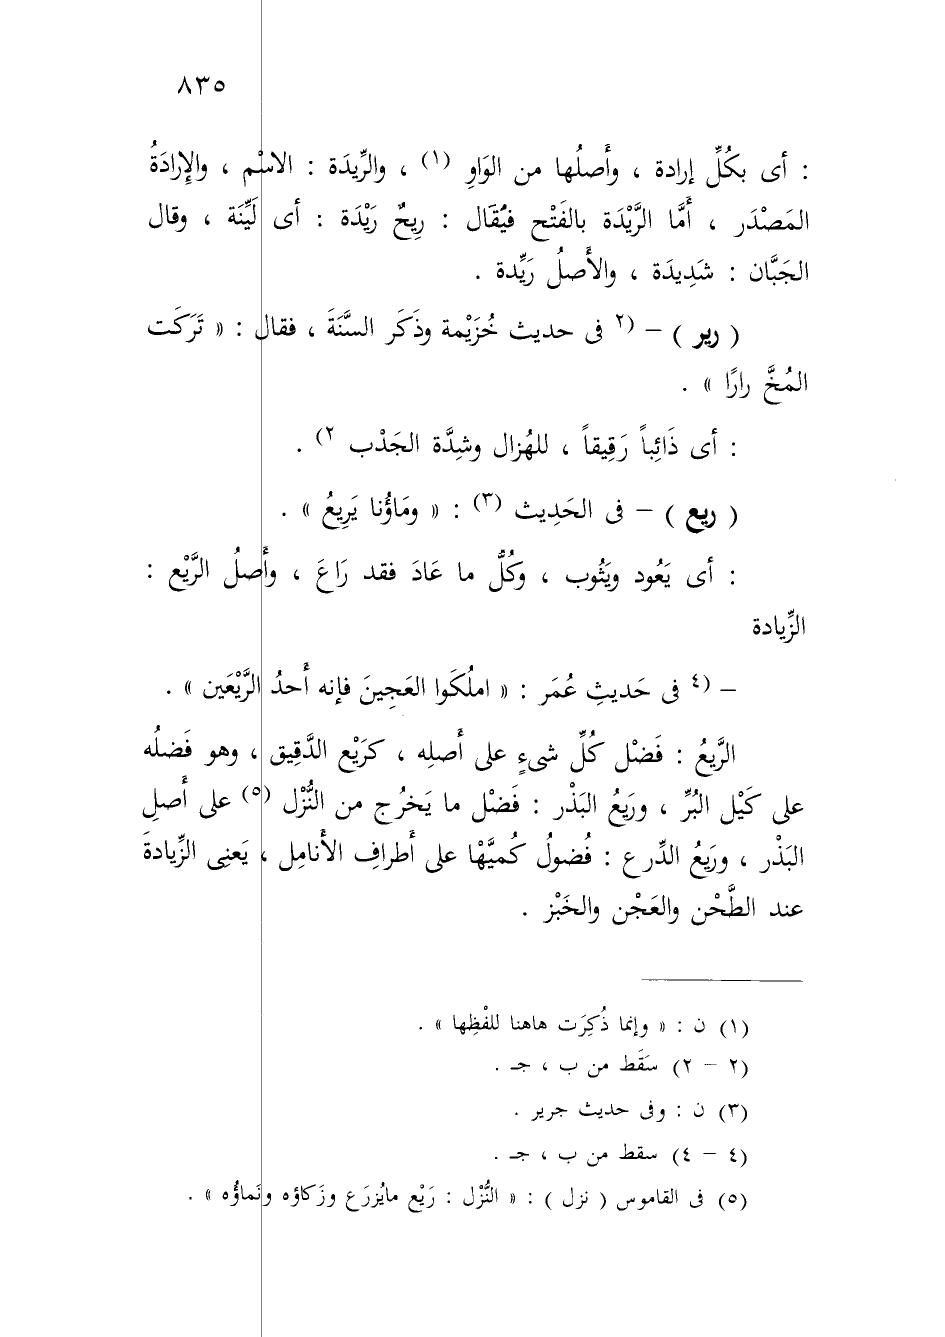 ٨٣٥
: أى بكُلِّ إرادة ، وأَصلُها من الوَاوِ (١) ، والرِّيدَة : الاسْم ، والإِرادَةُ
المَصْدَر ، أَمَّا الرَّيْدَة بالفَتْح فيُقَال : رِيحٌ رَيْدَة : أى لَيِّنَة ، وقال
الجَبَّان : شَدِيدَة ، والأَصلُ رَيِّدة .
( رير ) – (٢ فى حديث خُزَيْمة وذَكَر السَّنَةَ ، فقال : « تَرَكَت
المُخَّ رارًا » .
: أى ذَائِباً رَقِيقاً ، للهُزال وشِدَّة الجَدْب ٢) .
( ريع ) – فى الحَدِيث (٣) : « ومَاؤُنا يَرِيعُ » .
: أى يَعُود ويَثُوب ، وكُلُّ ما عَادَ فقد رَاعَ ، وأَصلُ الرَّيْع :
الزِّيادة
– (٤ فى حَديثِ عُمَر : « املُكَوا العَجِينَ فإنه أَحدُ الرَّيْعَين » .
الرَّيعُ : فَضْل كُلِّ شىءٍ على أَصلِه ، كرَيْع الدَّقِيق ، وهو فَضلُه
على كَيْل البُرِّ ، ورَيعُ البَذْر : فَضْل ما يَخرُج من النُّزْل (٥) على أَصلِ
البَذْر ، ورَيعُ الدِّرع : فُضولُ كُميَّهْا على أَطرافِ الأَنامِل ، يَعنِى الزِّيادةَ
عند الطَّحْن والعَجْن والخَبْز .
(١) ن : « وإنما ذُكِرَت هاهنا للفْظِها » .
(٢ – ٢) سَقَط من ب ، جـ .
(٣) ن : وفى حديث جرير .
(٤ – ٤) سقط من ب ، جـ .
(٥) فى القاموس ( نزل ) : « النُّزْل : رَيْع مايُزرَع وزَكاؤه ونَماؤُه » .